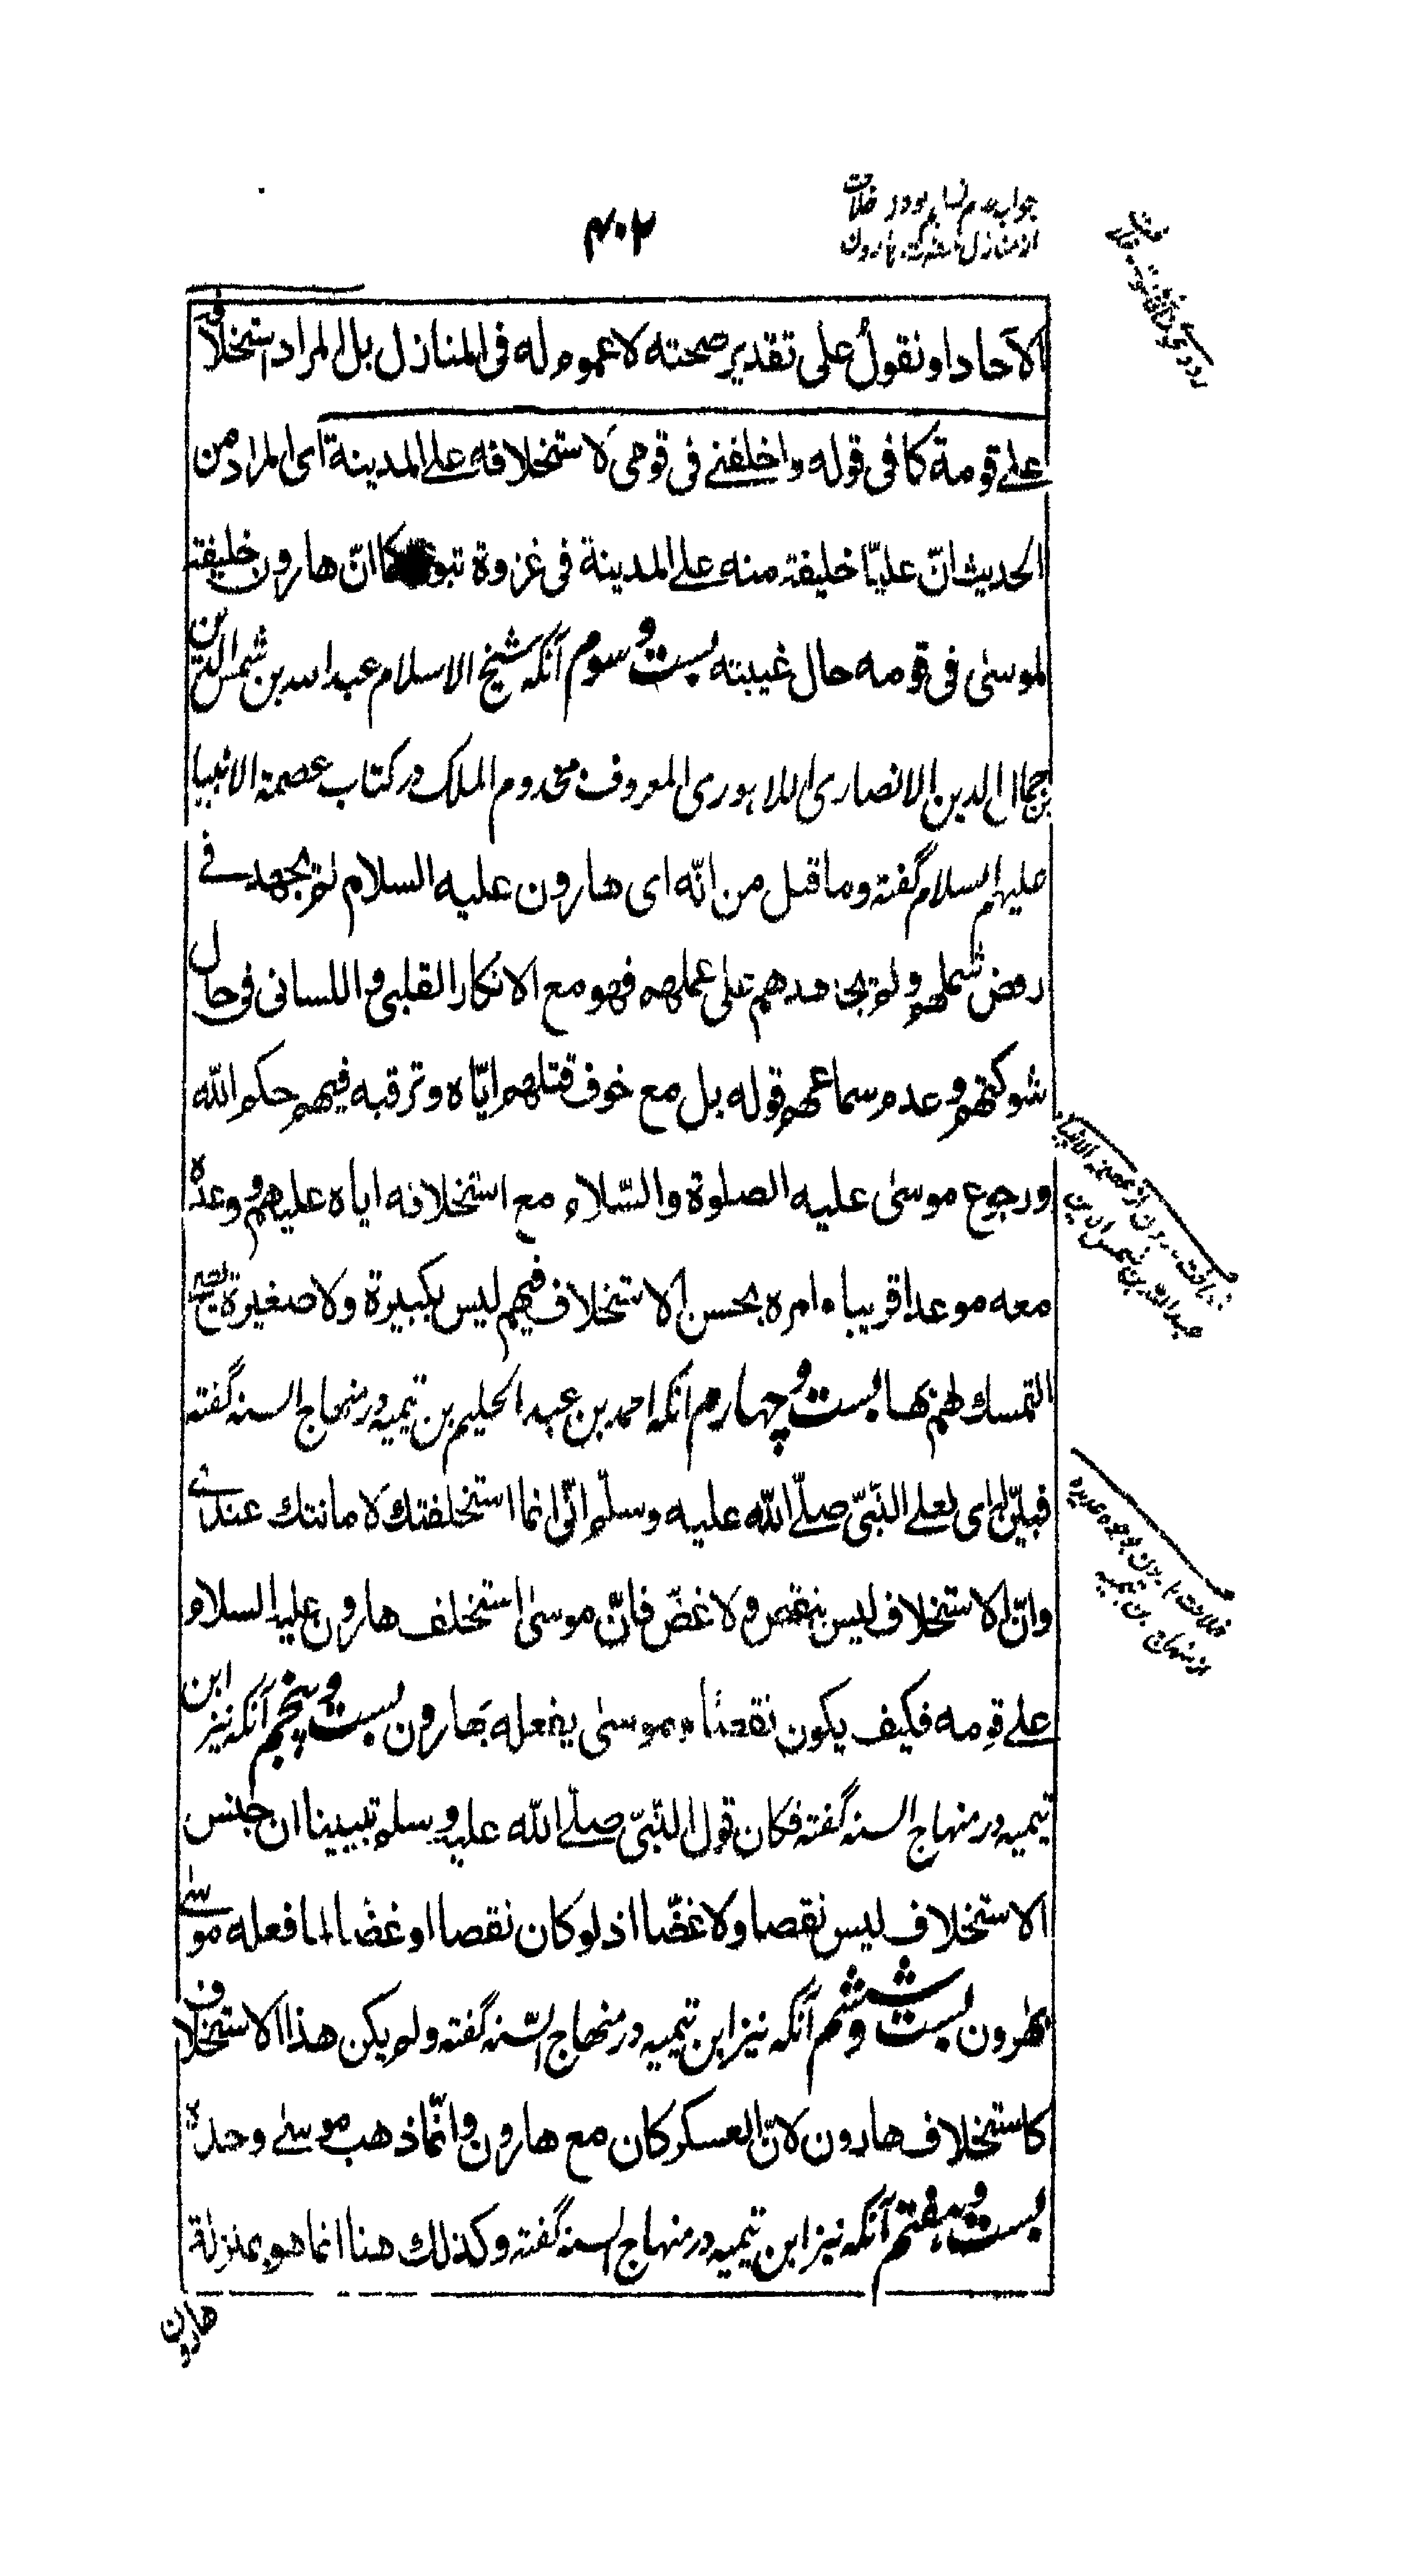 جواب عدم تسلیم بودن خلافت
از منازل حضرت هارون
۴۰۲
الآحاد او نقول علی تقدیر صحته لا عموم له فی المنازل بل المراد استخلافه
علے قومة کما فی قوله واخلفنے فی قومی لاستخلافه علے المدینة ای المراد من
الحدیث انّ علیّا خلیفة منه علے المدینة فی غزوة تبوك کما انّ هارون خلیفته
لموسیٰ فی قومه حال غیبته بست و سوم آنکه شیخ الاسلام عبد الله بن شمس الدین
بن جمال الدین الانصاری اللاہوری المعروف بمخدوم الملک در کتاب عصمة الانبیا
علیهم السلام گفته وما قیل من انّه ای هارون علیه السلام لم یجهد فے
رفض شملهم ولم یجاهدهم علی عملهم فهو مع الانکار القلبی و اللسانی فی حال
شوکتهم و عدم سماعهم قوله بل مع خوف قتلهم ایّاه و ترقبه فیهم حکم اللّه
ورجوع موسیٰ علیه الصلوة والسّلام مع استخلافه ایاه علیهم و وعده
معه موعدا قریبا وامره بحسن الاستخلاف فیهم لیس بکبیرة ولا صغیرة یصح
التمسك لهم بها بست و چهارم آنکه احمد بن عبد الحلیم بن تیمیه در منهاج السنه گفته
فبیّن له ای لعلے النّبیّ صلّے اللّه علیه وسلّم انّی انما استخلفتك لامانتك عندے
وانّ الاستخلاف لیس بنقص ولا غضّ فانّ موسیٰ استخلف هارون علیه السلام
علے قومه فکیف یکون نقصًا وموسیٰ یفعله بهارون بست و پنجم آنکه نیز ابن
تیمیه در منهاج السنه گفته فکان قول النّبیّ صلّے اللّه علیه وسلم تبیینا ان جنس
الاستخلاف لیس نقصا ولا غضّا اذ لو کان نقصا او غضّا لما فعله موسے
بهرون بست و ششم آنکه نیز ابن تیمیه در منهاج السّنه گفته ولم یکن هذا الاستخلاف
کاستخلاف هارون لانّ العسکر کان مع هارون وانّما ذهب موسے وحده
بست و هفتم آنکه نیز ابن تیمیه در منهاج السنه گفته وکذلك هنا انما هو بمنزلة
هارون
خلافت هارون از عصمة الانبیا
عبد الله بن شمس الدین
خلافت هارون بوجوه عدیده
از منهاج ابن تیمیه